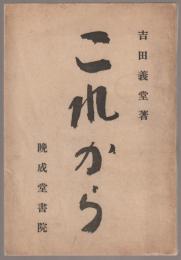 吉田義堂著
これから
晩成堂書院